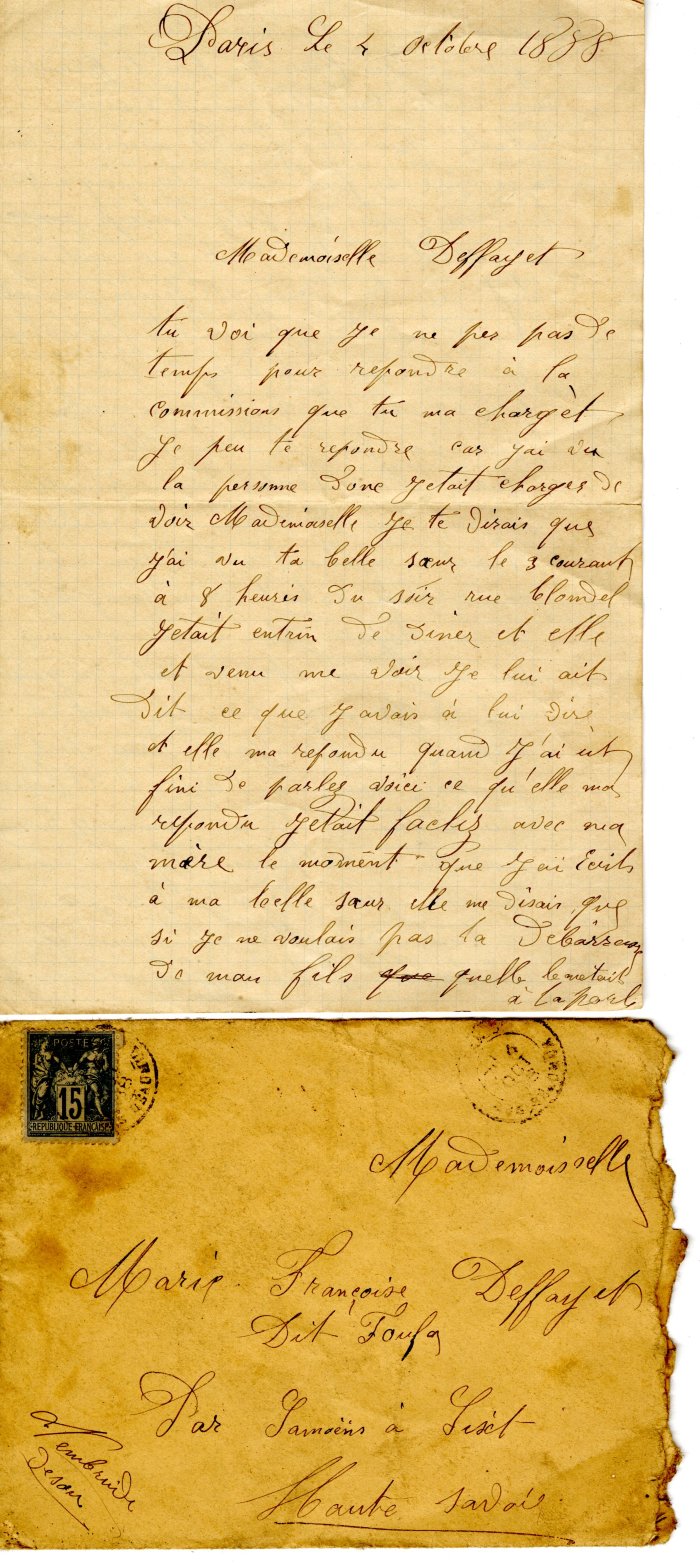 Paris Le 4 Octobre 1888
Mademoiselle Deffayet
tu voi que je ne per pas de
temps pour repondre à la
commissions que tu ma chargèt
Je peu te repondre car j'ai vu
la personne donc jetait charges de
voir Mademoiselle Je te dirais que
j'ai vu ta belle sœur le 3 courant
à 8 heures du soir rue blondel
Jetait entrin de diner et elle
et venu me voir Je lui ait
dit ce que J avais à lui dire
et elle ma repondu quand J'ai ut
fini de parlez voici ce qu'elle ma
repondu Jetait fachez avec ma
mère le moment que J'ai Ecrit
à ma belle sœur elle me disais que
si Je ne voulais pas la
de mon fils que quelle le metait
à la porte
POSTES
15
REPUBLIQUE FRANÇAISE
4
OCT
Mademoisselle
Marie Françoise Deffayet
Dit Foula
Par Samoëns à Sixt
Haute Savoie